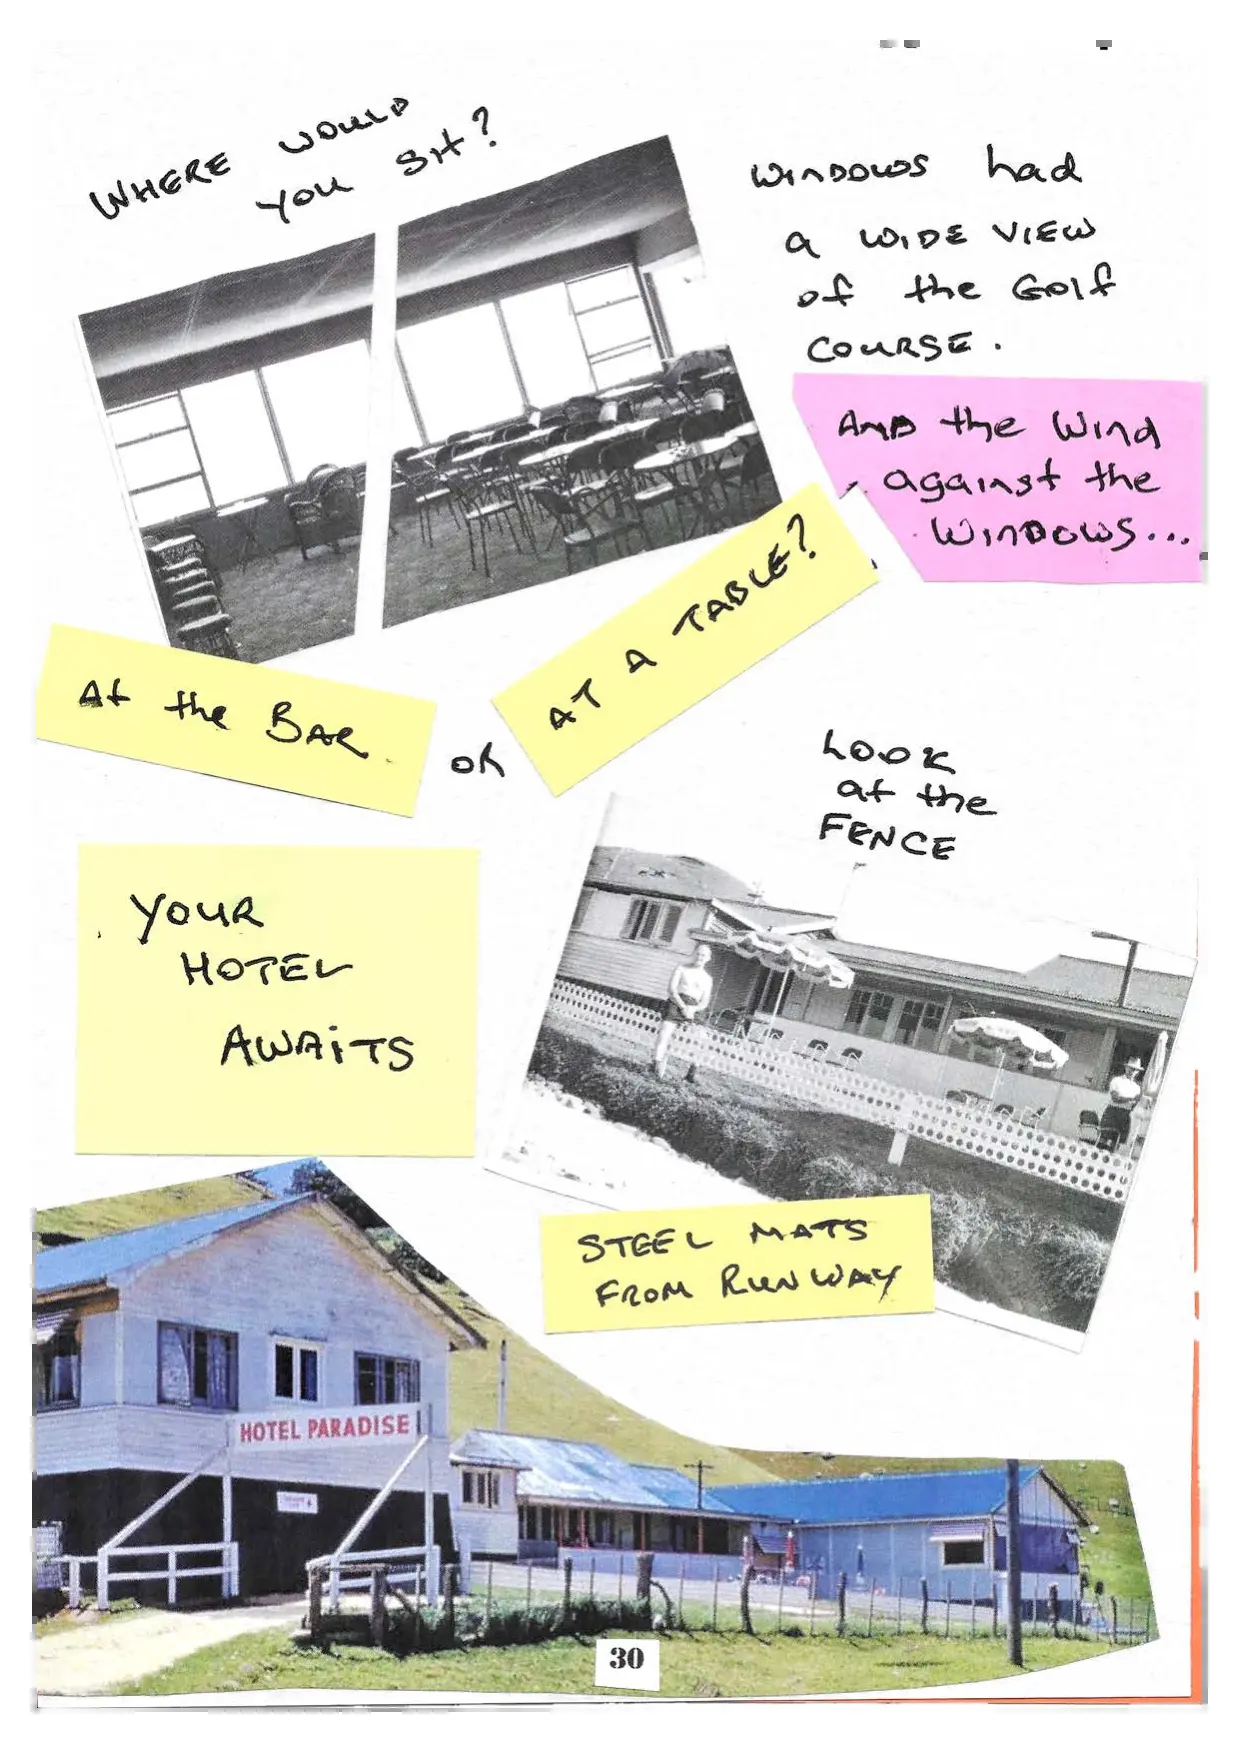 WHERE WOULD
YOU SIT?
WINDOWS had
a WIDE VIEW
of the Golf
COURSE.
AND the Wind
against the
WINDOWS...
At the BAR
OR
AT A TABLE?
LOOK
at the
FENCE
YOUR
HOTEL
AWAiTS
STEEL MATS
FROM RUNWAY
HOTEL PARADISE
30